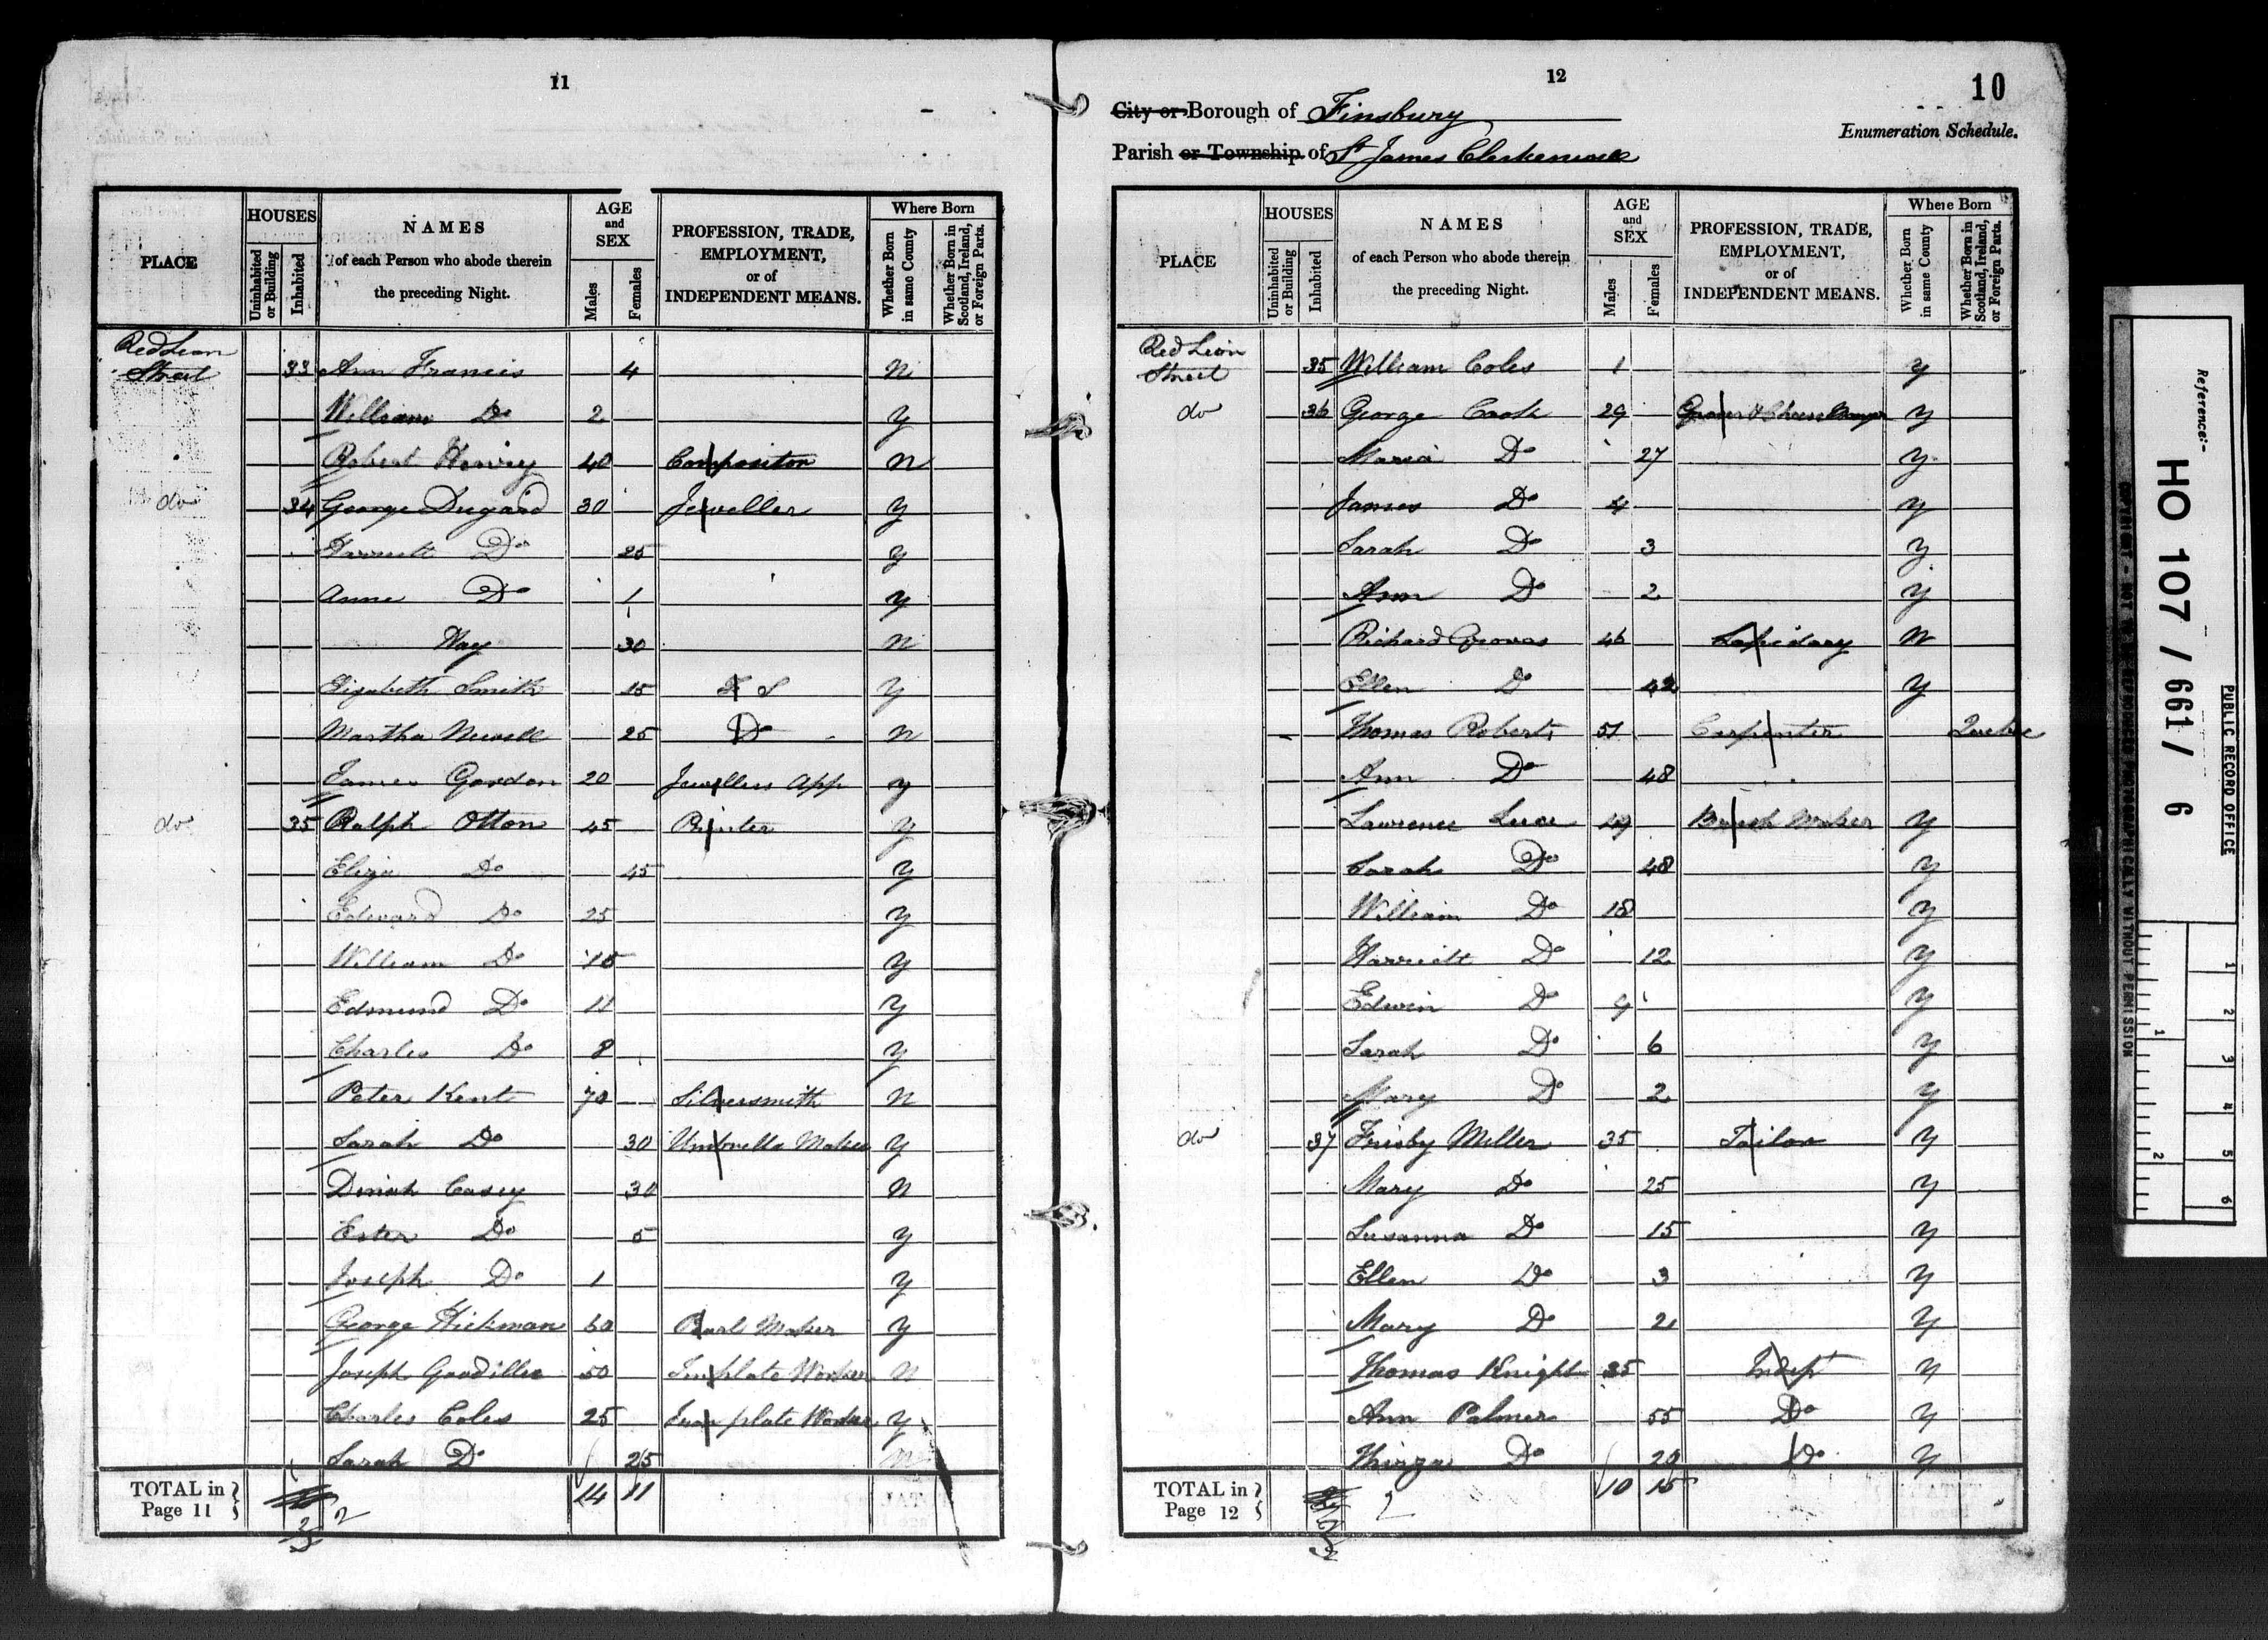 11
PLACE
HOUSES
Uninhabited or Building
Inhabited
NAMES
of each Person who abode therein
the preceding Night.
AGE and SEX
Males
Females
PROFESSION, TRADE,
EMPLOYMENT,
or of
INDEPENDENT MEANS.
Where Born
Whether Born in same County
Whether Born in Scotland, Ireland, or Foreign Parts.
Red Lion
Street 33 Ann Francis 4 N
William Do 2 Y
Robert Henry 40 Compositor N
do 34 George Dugard 30 Jeweller Y
Harriett Do 25 Y
Anne Do 1 Y
Way 30 N
Elizabeth Smith 15 F S Y
Martha Newell 25 Do N
James Gordon 20 Jewellers App Y
do 35 Ralph Otton 45 Printer Y
Eliza Do 45 Y
Edward Do 25 Y
William Do 15 Y
Edmund Do 11 Y
Charles Do 8 Y
Peter Kent 70 Silversmith N
Sarah Do 30 Umbrella Maker Y
Dinah Casey 30 N
Ester Do 5 Y
Joseph Do 1 Y
George Hickman 60 Pearl Maker Y
Joseph 50 plate Worker N
Charles Coles 25 plate Worker Y
Sarah Do 25 N
TOTAL in Page 11 2 14 11
12
10
City or Borough of Finsbury
Enumeration Schedule.
Parish or Township of St James Clerkenwell
PLACE
HOUSES
Uninhabited or Building
Inhabited
NAMES
of each Person who abode therein
the preceding Night.
AGE and SEX
Males
Females
PROFESSION, TRADE,
EMPLOYMENT,
or of
INDEPENDENT MEANS.
Where Born
Whether Born in same County
Whether Born in Scotland, Ireland, or Foreign Parts.
Red Lion
Street 35 William Coles 1 Y
do 36 George Cook 29 Grocer & Cheesemonger Y
Maria Do 27 Y
James Do 4 Y
Sarah Do 3 Y
Ann Do 2 Y
Richard Groves 46 Lapidary N
Ellen Do 42 Y
Thomas Roberts 51 Carpenter Quebec
Ann Do 48
Lawrence Luce 49 Brush Maker Y
Sarah Do 48 Y
William Do 18 Y
Harriett Do 12 Y
Edwin Do 9 Y
Sarah Do 6 Y
Mary Do 2 Y
do 37 Frisby Miller 35 Tailor Y
Mary Do 25 Y
Susanna Do 15 Y
Ellen Do 3 Y
Mary Do 2 Y
Thomas Knight 35 Indept Y
Ann Palmer 55 Do Y
Thirza Do 20 Do Y
TOTAL in Page 12 2 10 15
Reference:-
HO 107 / 661 / 6
PUBLIC RECORD OFFICE
COPYRIGHT - NOT TO BE REPRODUCED PHOTOGRAPHICALLY WITHOUT PERMISSION
1
2
3
4
5
6
1
2